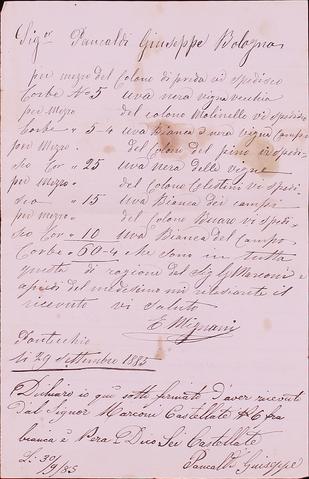 Sig.or Pancaldi Giuseppe Bologna
per mezzo del Colono di preda vi spedisco
Corbe No 5 uva nera vigna vecchia
per Mezzo del colono Molinello vi spedisco
Corbe " 5-4 uva Bianca e nera vigna Campo
per Mezzo del Colono del pino vi spedi-
sco Cor " 25 uva nera delle vigne
per Mezzo del Colono Celestini vi spedi
sco " 15 uva Bianca dei campi
per Mezzo del Colono vi spedi-
sco Cor " 10 uva Bianca del Campo
Corbe " 60-4 che sono in tutta
questa di ragione del Sig G Marconi e
del medesimo mi rilasciante il
ricevuto vi saluto
E. Mignani
Pontecchio
li 29 Settembre 1885
Dichiaro io qui sotto firmato d'aver ricevuto
dal Signor Marconi Castellate No 6 fra
bianca e Nera Dico Sei Castellate
L: 30/9/85 Pancaldi Guiseppe